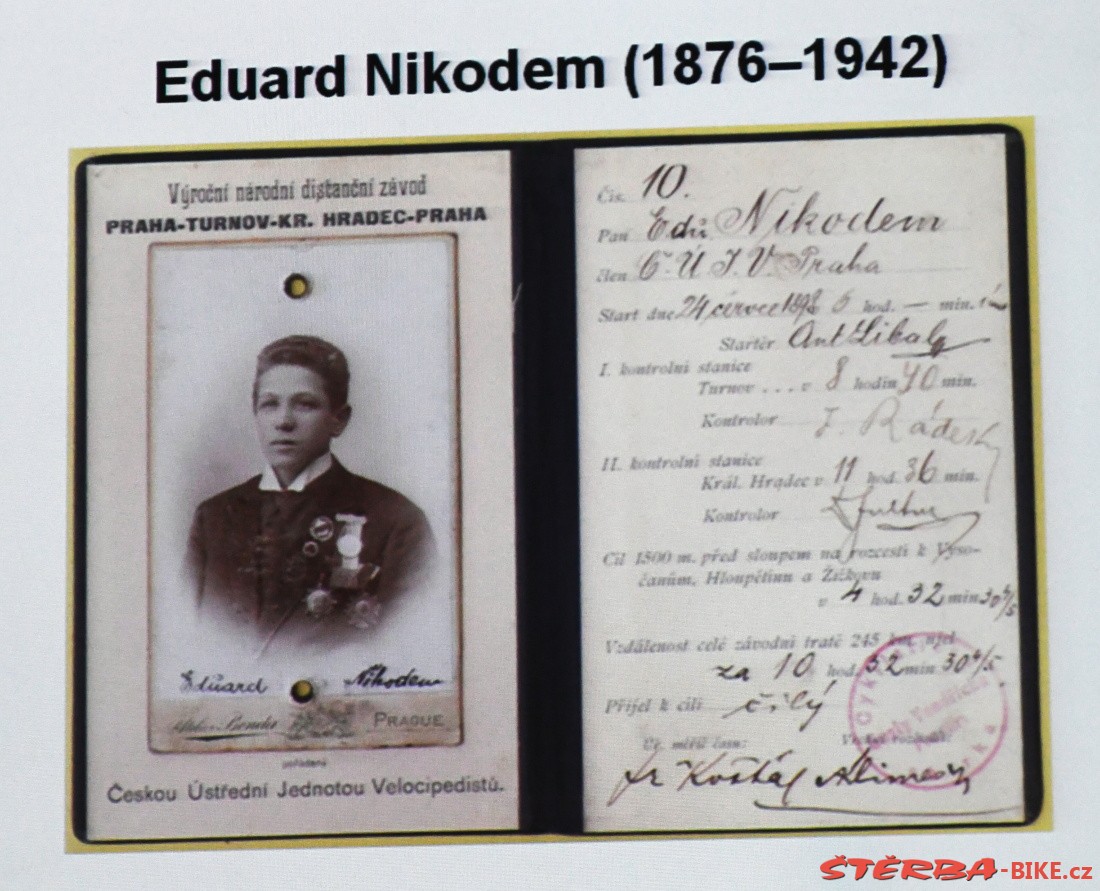 Eduard Nikodem (1876–1942)
Výroční národní distanční závod
PRAHA-TURNOV-KR. HRADEC-PRAHA
Eduard Nikodem
PRAGUE
pořádaný
Českou Ústřední Jednotou Velocipedistů.
Čís. 10.
Pan Edu Nikodem
člen Č. Ú. J. V. Praha
Start dne 24 července 6 hod. — min.
Startér Ant Libal
I. kontrolní stanice
Turnov . . . v 8 hodin 40 min.
Kontrolor J.
II. kontrolní stanice
Král. Hradec v 11 hod. 36 min.
Kontrolor
Cíl 1500 m. před sloupem na rozcestí k Vyso-
čanům, Hloupětínu a Žižkovu
v 4 hod. 32 min 30 4/5
Vzdálenost celé závodní tratě 245 km. ujel
za 10 hod. 32 min 30 4/5
Přijel k cíli čilý
Úř. měřič času:
fr Košťál
ŠTĚRBA-BIKE.cz